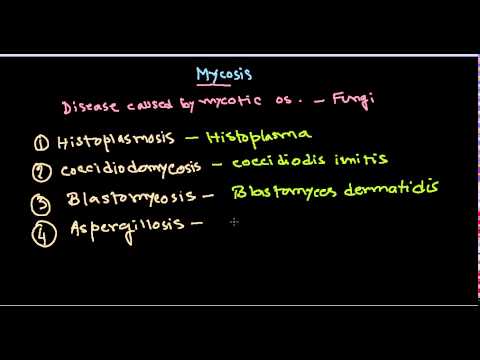 Mycosis
Disease caused by mycotic os. - Fungi
① Histoplasmosis - Histoplasma
② Coccidiodomycosis - Coccidiodis imitis
③ Blastomycosis - Blastomyces dermatidis
④ Aspergillosis -